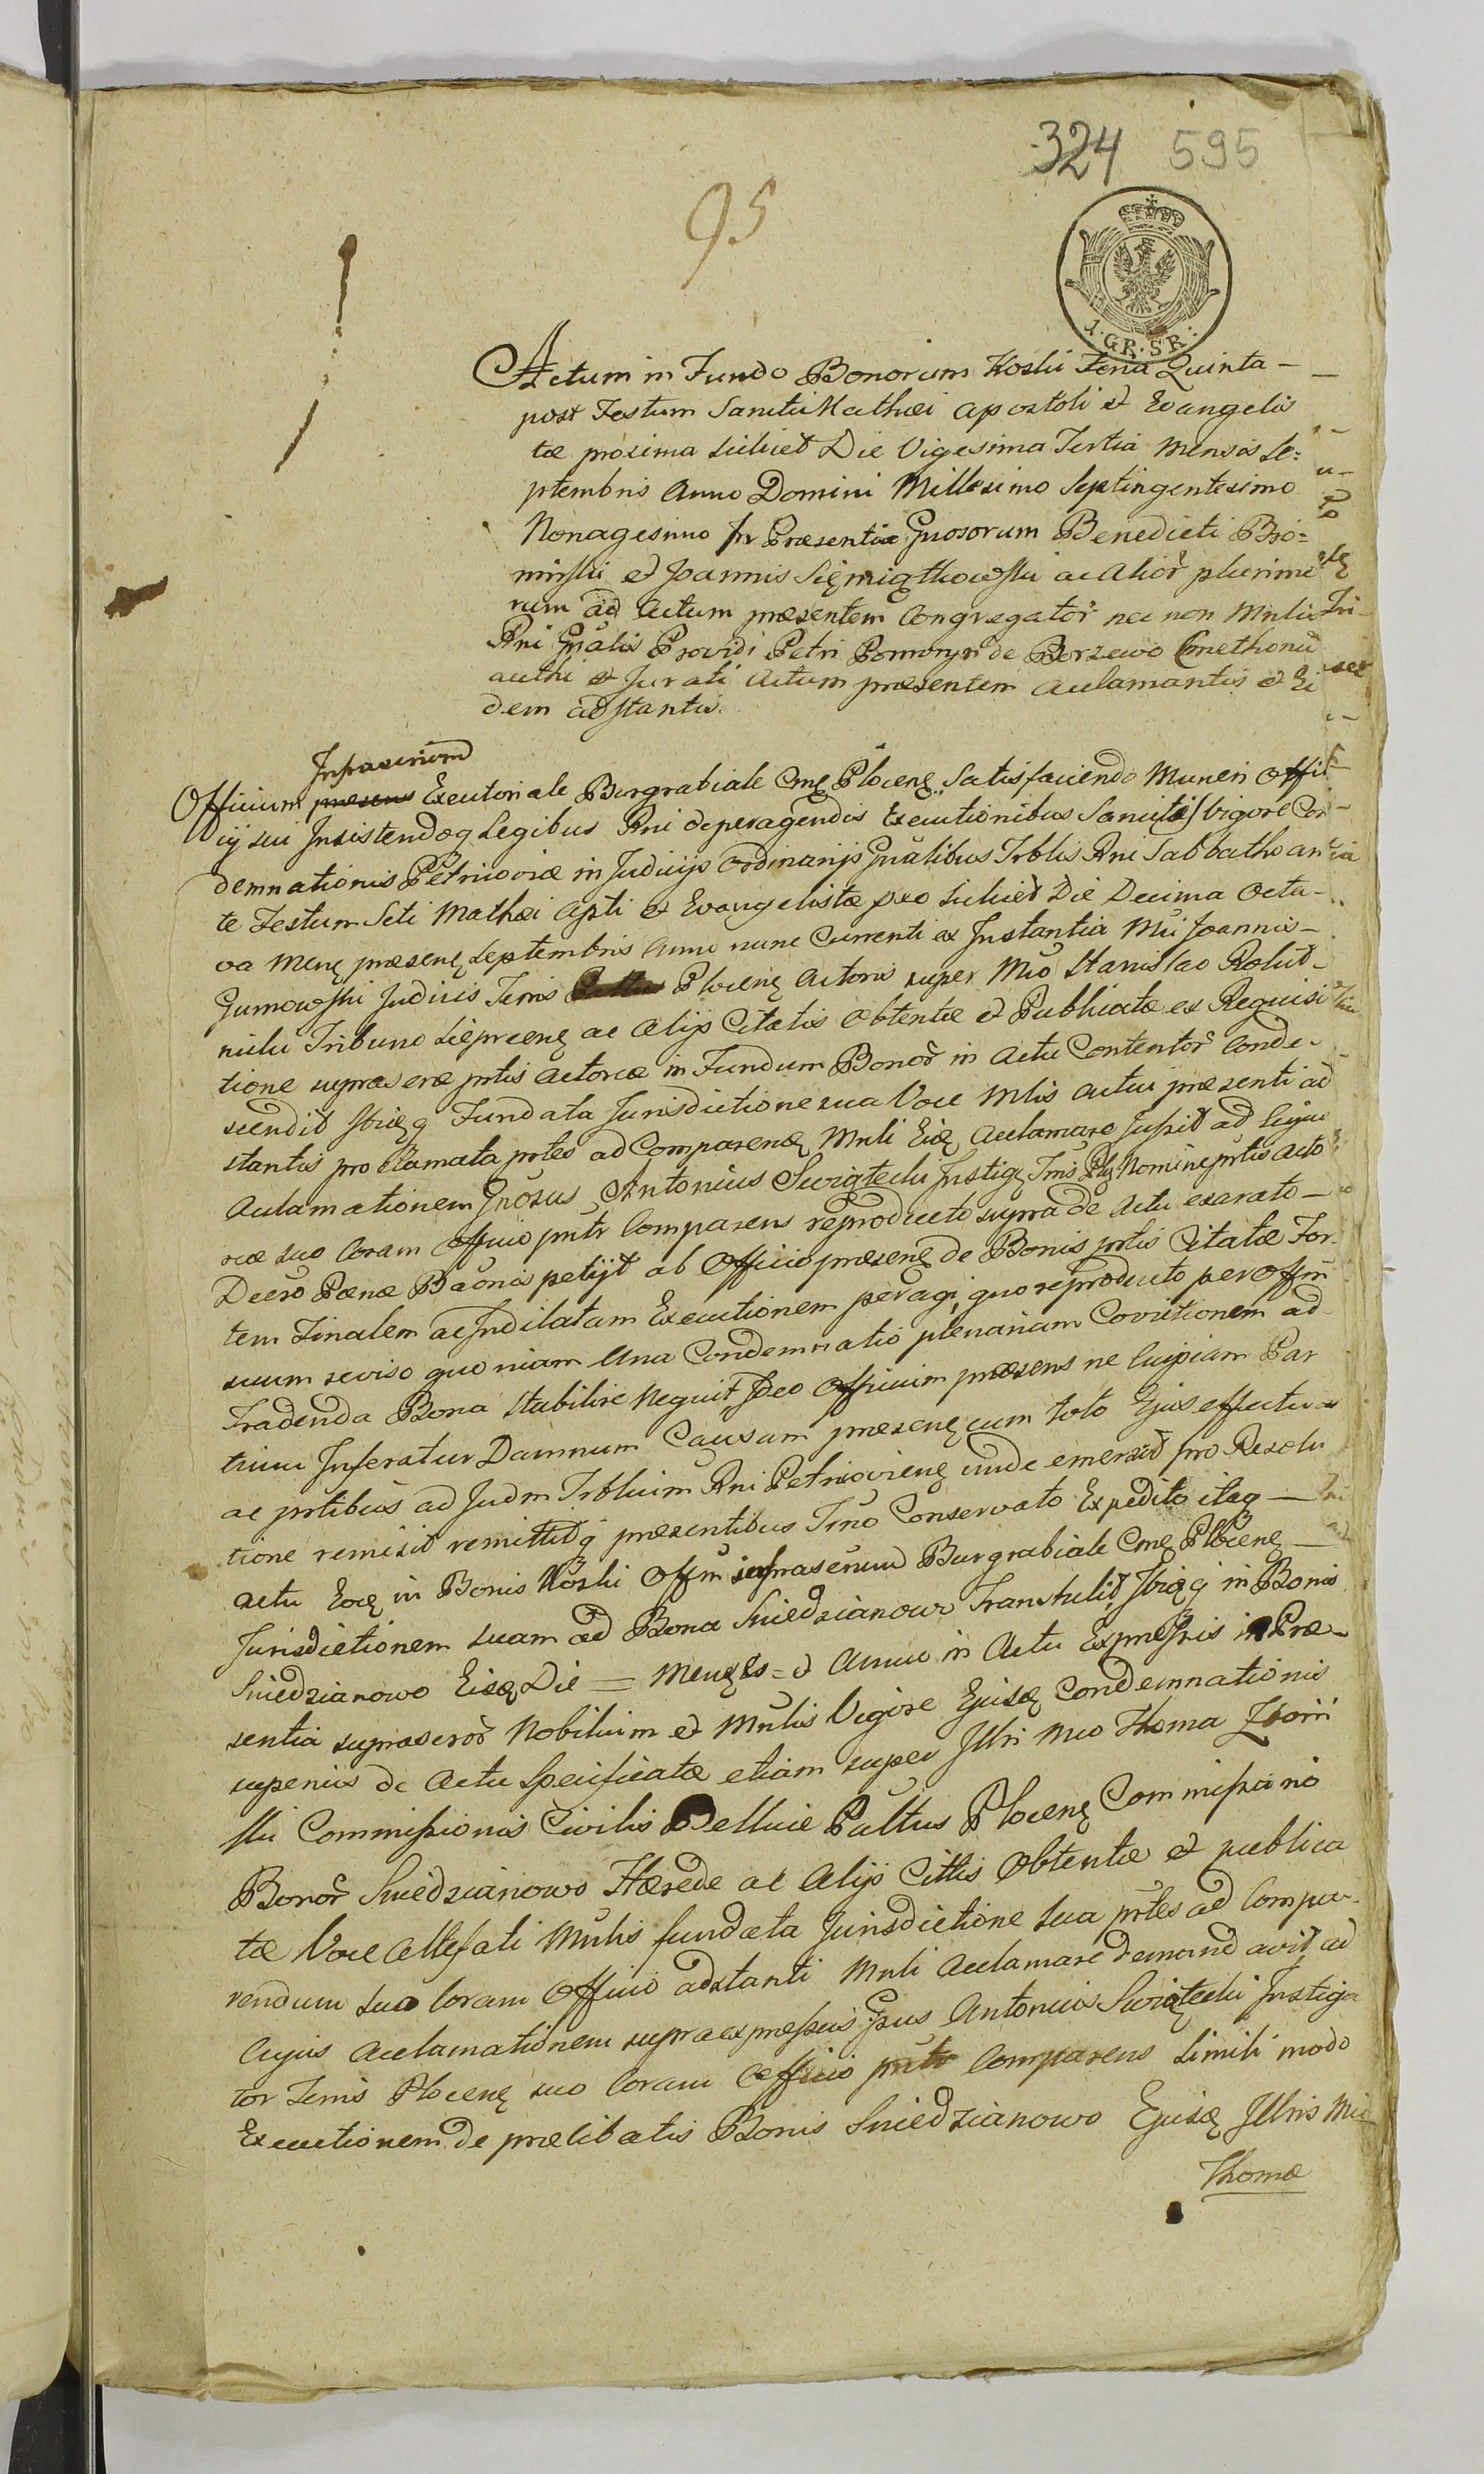 324 595
95
1·GR·SR·
Actum in Fundo Bonorum Koski Feria Quinta –
post Festum Sancti Mathæi Apostoli et Evangelis
tæ proxima scilicet Die Vigesima Tertia Mensis Se:
ptembris Anno Domini Millesimo Septingentesimo
Nonagesimo In Præsentia Gnosorum Benedicti Bro=
minski et Joannis Sięmiątkowski ac Alior plurimo
rum ad Actum præsentem Congregator nec non Mnlis
Rni Gnalis Providi Petri de Borzewo Cmethonis
authi et Jurati Actum præsentem Acclamantis et Ei
dem adstantis.
Infrascriptum
Officium præsens Executoriale Burgrabiale Cmę Plocenę Satisfaciendo Muneri Offi
cij sui Insistendoq Legibus Rni de peragendis Executionibus Sancitis vigore Con
demnationis Petricoviæ in Judicijs Ordinarijs Gnalibus Trblis Rni Sabbatho an
te Festum Scti Mathæi Apti et Evangelistæ pxo scilicet Die Decima Octa-
va Menę præsenę Septembris Anno nunc Currenti ex Instantia Mci Joannis –
Gumowski Judicis Terris Plocenę Actoris super Mco Stanislao
Tribuno Sieprcenę ac Alijs Citatis Obtentæ et Publicatæ ex Requisi
tione supras ptis Actoreæ in Fundum Bonor in Actu Contentor Conde-
scendit Ibięq Fundata Jurisdictione sua Voce Mlis Actui præsenti ad
stantis proclamata prtes ad Comparenę Mnli Eię Acclamare Jussit ad Cujus
Aclamationem Gnosus Antonius Swiątecki Instigę Trris Plę Nomine prtis Acto
reæ suo Coram Officio pntr Comparens reproducto supra de Actu exarato –
Decro Pænæ Baonis petijt ab Officio præsenę de Bonis prtis Citatæ For-
tem Finalem ac Indilatam Executionem peragi, quo reproducto per Offm
suum reviso quoniam Una Condemnatio plenariam Convictionem ad
Tradenda Bona Stabilire Nequit Ideo Officium præsens ne Cuipiam Par
tium Inferatur Damnum Causam præsenę cum toto Ejus effectu
ac prtibus ad Judm Trblium Rni Petricovienę unde emersit pro Resolu
tione remisit remittitq præsentibus Trno Conservato Expedito itaq –
Actu Eoę in Bonis Koski Offm Burgrabiale Cmę Plocenę –
Jurisdictionem suam ad Bona Sniedzianowo Transtulit, Ibięq in Bonis
Sniedzianowo Eisę Die = Menę = et Anno in Actu Expressis in Præ-
sentia suprascror Nobilium et Mnlis Vigore Ejusę Condemnationis
superius de Actu Specificatæ etiam super Illri Mco Thoma
ski Commissionis Civilis Bellicæ Paltus Plocenę Commissario
Bonor Sniedzianowo Hærede ac Alijs Cittis Obtentæ et publica
tæ Voce Attefati Mnlis fundata Jurisdictione sua prtes ad Compa-
rendum suo Coram Officio adstanti Mnli Acclamare demandavit, ad
Cujus Acclamationem supra expressus Gnus Antonius Swiątecki Instiga
tor Terris Plocenę suo Coram Officio pntr Comparens Simili modo
Executionem de prælibatis Bonis Sniedzianowo Ejusę Illris Mci
Thomæ